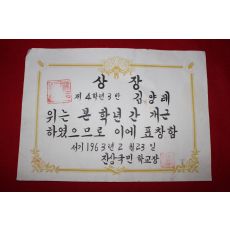 상장
제 4학년 3반 김양래
위는 본 학년간 개근
하였으므로 이에 표창함
서기 1963년 2월 23일
국민학교장